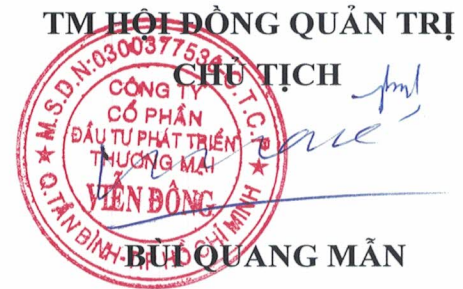 TM HỘI ĐỒNG QUẢN TRỊ
CHỦ TỊCH
M.S.D.N:0300377536-C.T.C.P
CÔNG TY
CỔ PHẦN
ĐẦU TƯ PHÁT TRIỂN
THƯƠNG MẠI
VIỄN ĐÔNG
Q.TÂN BÌNH-TP.HỒ CHÍ MINH
BÙI QUANG MẪN